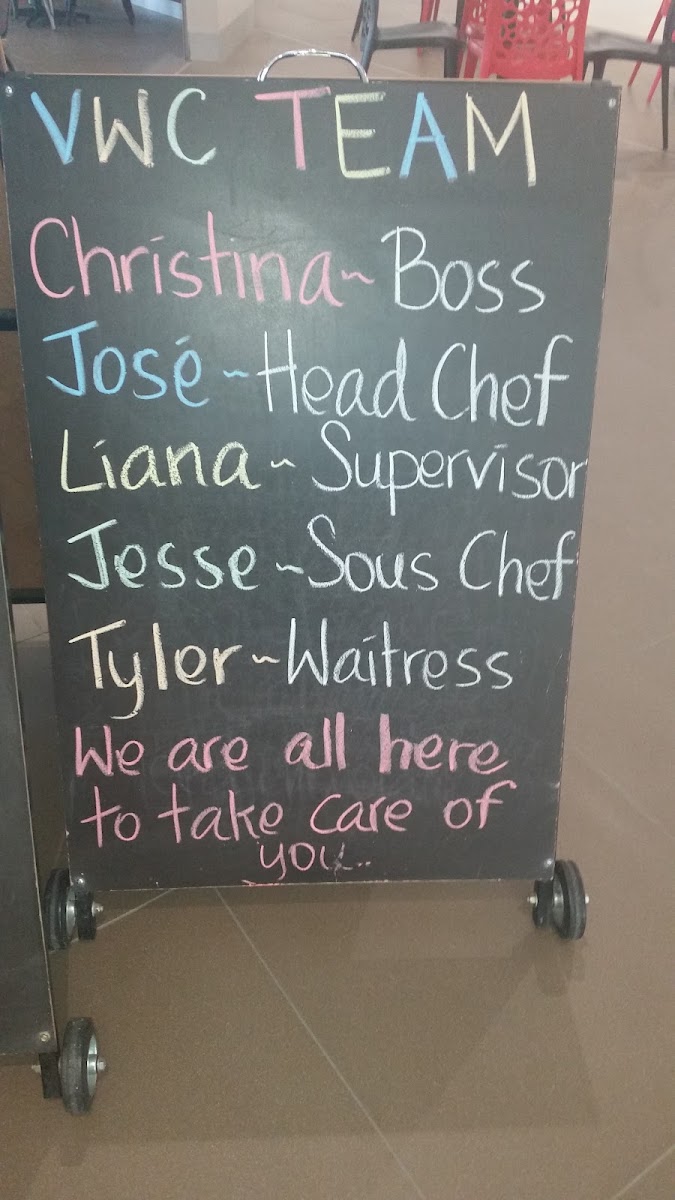 VWC TEAM
Christina ~ Boss
José ~ Head Chef
Liana ~ Supervisor
Jesse ~ Sous Chef
Tyler ~ Waitress
We are all here
to take care of
you...